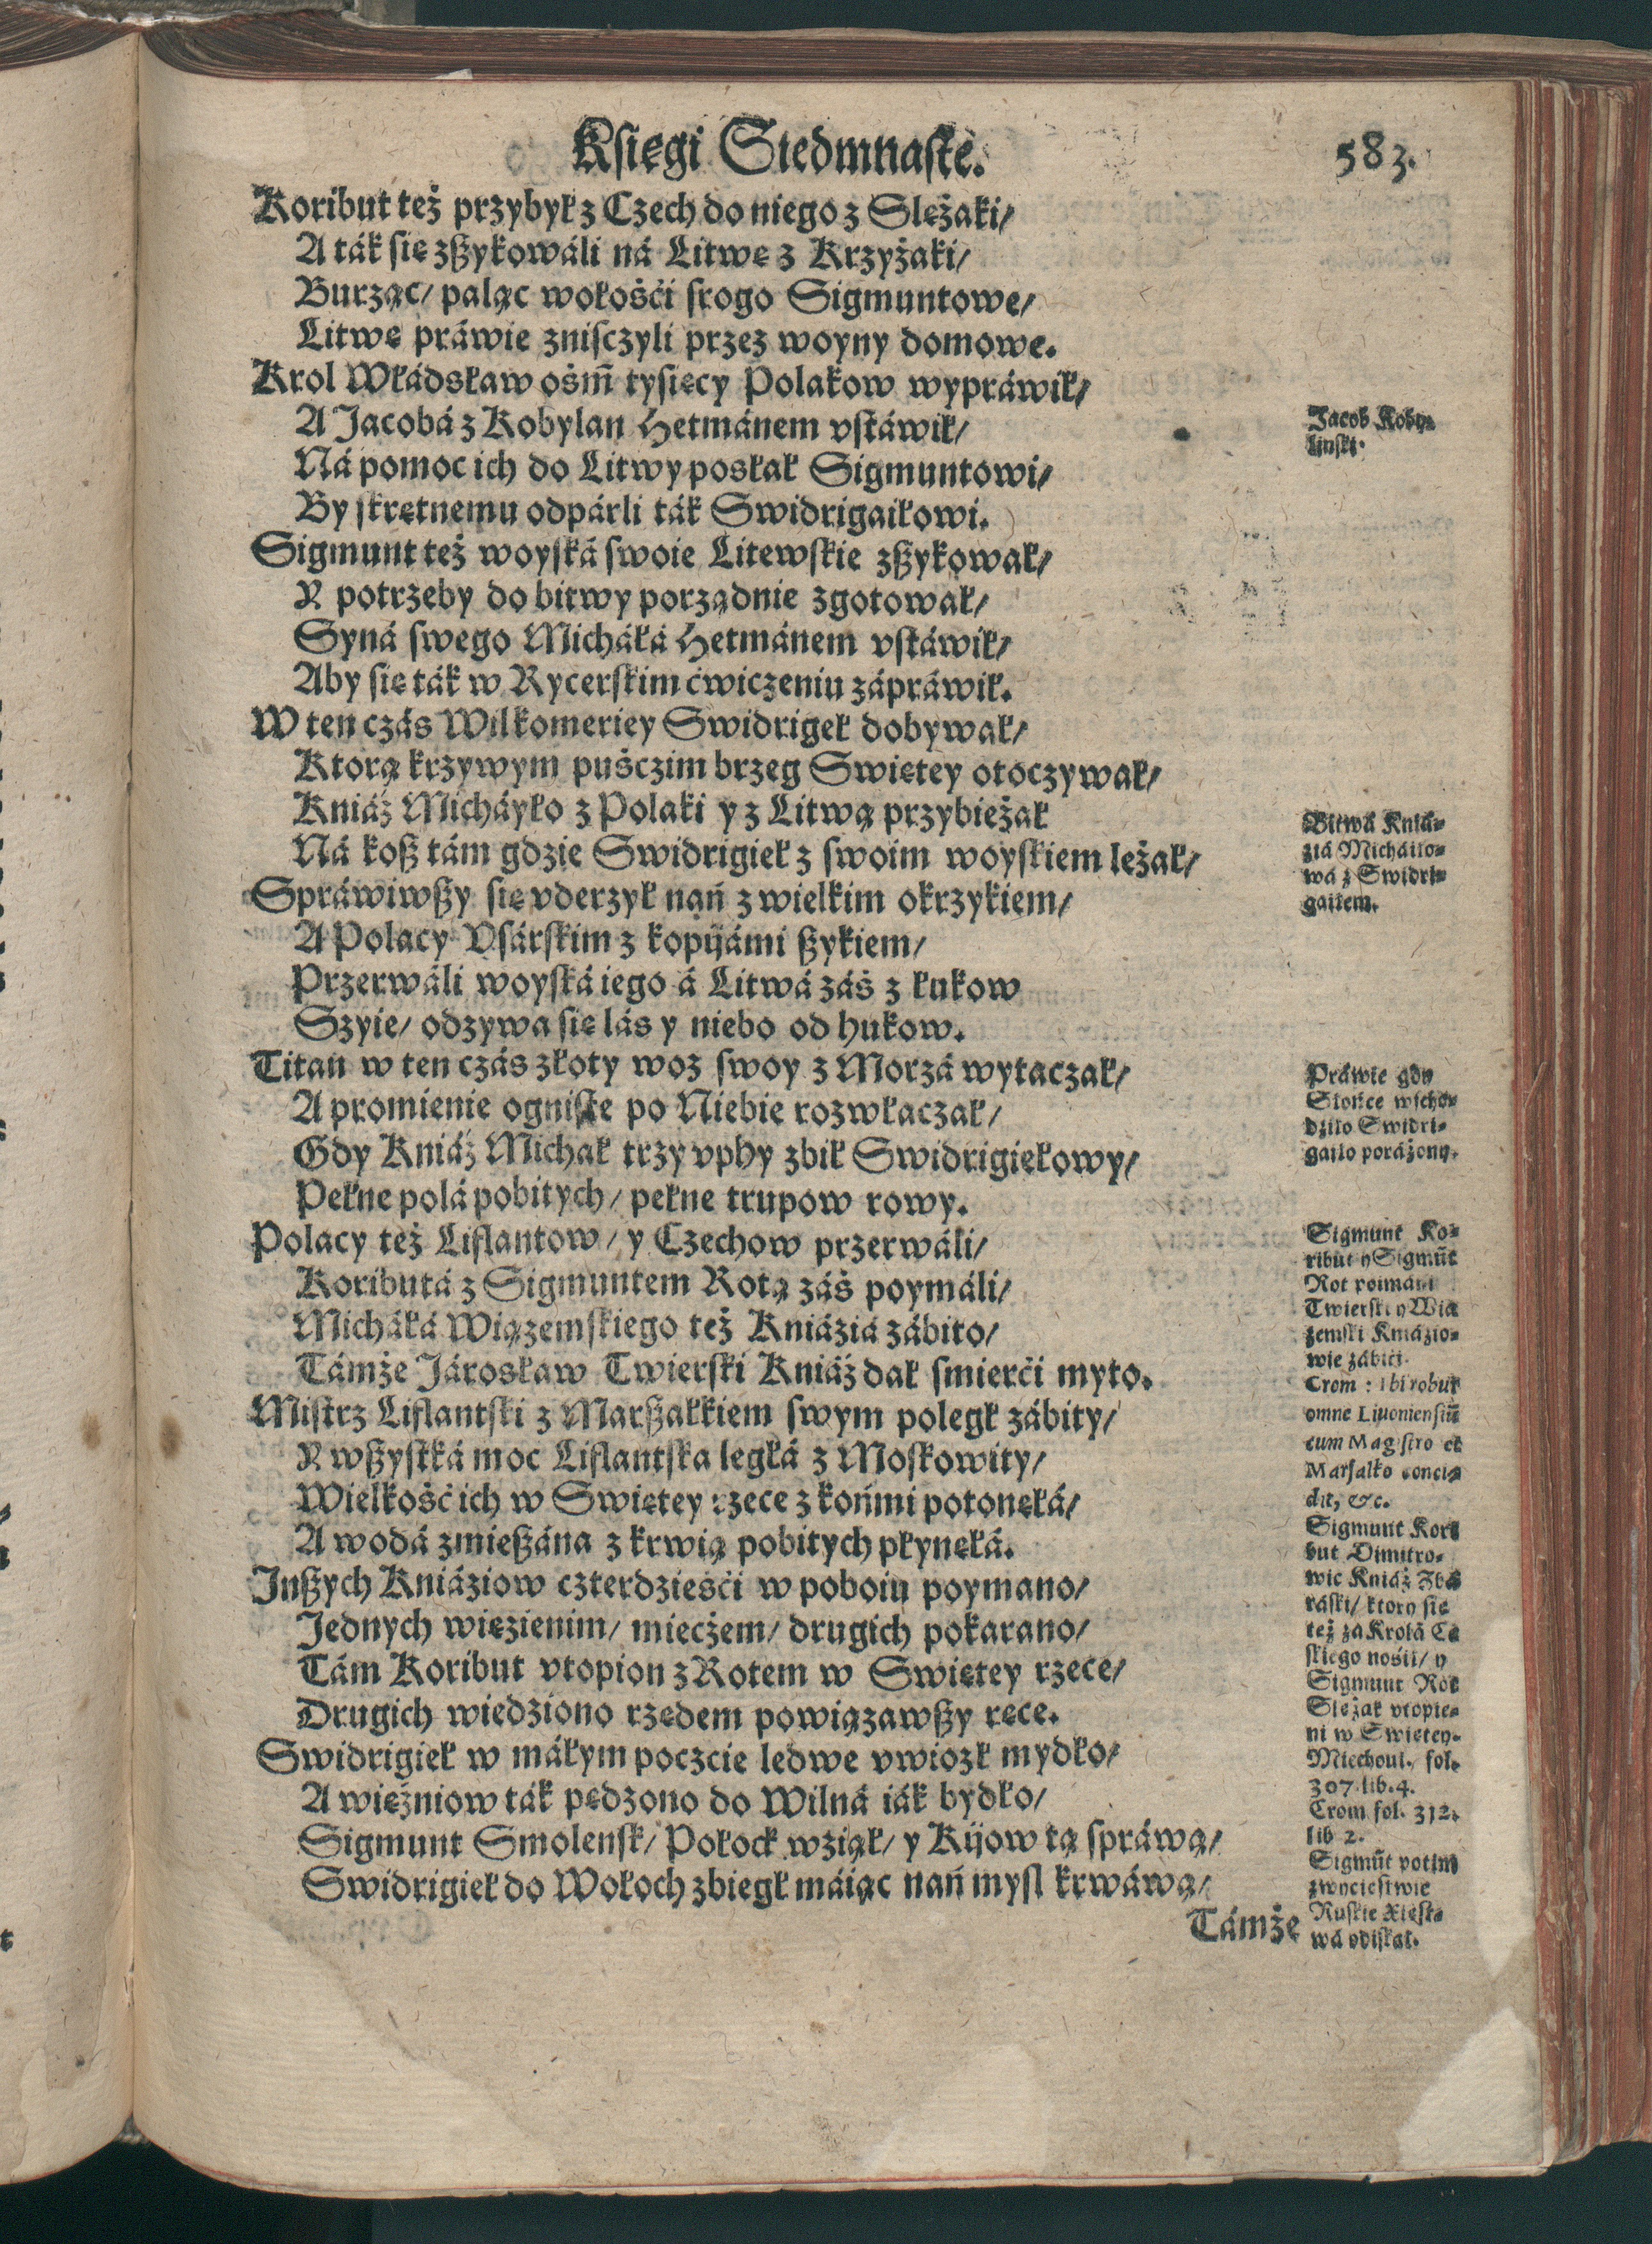 Księgi Siedmnaste. 583.
Koribut też przybył z Czech do niego z Slężaki/
A ták się zßykowáli ná Litwę z Krzyżaki/
Burząc/ paląc włośći srogo Sigmuntowe/
Litwę práwie znisczyli przez woyny domowe.
Krol Włádsław ośm̃ tysięcy Polakow wypráwił/
A Jacobá z Kobylan Hetmánem vstáwił/
Ná pomoc ich do Litwy posłał Sigmuntowi/
By skrętnemu odpárli ták Swidrigaiłowi.
Sigmunt też woyská swoie Litewskie zßykował/
Y potrzeby do bitwy porządnie zgotował/
Syná swego Micháłá Hetmánem vstáwił/
Aby się ták w Rycerskim ćwiczeniu zápráwił.
W ten czás Wilkomeriey Swidrigeł dobywał/
Ktorą krzywym puśczim brzeg Swiętey otoczywał/
Kniáź Micháyło z Polaki y z Litwą przybieżał
Ná koß tám gdzie Swidrigieł z swoim woyskiem leżał/
Spráwiwßy się vderzył nań z wielkim okrzykiem/
A Polacy Vsárskim z kopijámi ßykiem/
Przerwáli woyská iego á Litwá záś z łukow
Szyie/ odzywa się lás y niebo od hukow.
Titan w ten czás złoty woz swoy z Morzá wytaczał/
A promienie ogniste po Niebie rozwłaczał/
Gdy Kniáź Michał trzy vphy zbił Swidrigiełowy/
Pełne polá pobitych/ pełne trupow rowy.
Polacy też Liflantow/ y Czechow przerwáli/
Koributá z Sigmuntem Rotą záś poymáli/
Micháłá Wiązemskiego też Kniáziá zábito/
Támże Járosław Twierski Kniáź dał smierći myto.
Mistrz Liflantski z Marßałkiem swym poległ zábity/
Y wßystká moc Liflantska ległá z Moskowity/
Wielkość ich w Swiętey rzece z końmi potonęłá/
A wodá zmießána z krwią pobitych płynęłá.
Jnßych Kniáziow czterdzieśći w poboiu poymano/
Jednych więzienim/ mieczem/ drugich pokarano/
Tám Koribut vtopion z Rotem w Swiętey rzece/
Drugich wiedziono rzędem powiązawßy ręce.
Swidrigieł w máłym poczcie ledwe vwiozł mydło/
A więźniow ták pędzono do Wilná iák bydło/
Sigmunt Smolensk/ Połock wziął/ y Kijow tą spráwą/
Swidrigieł do Wołoch zbiegł máiąc nań mysl krwáwą/
Támże
Jacob Koby-
linski.
Bitwá Kniá-
ziá Micháiło-
wá z Swidri-
gaiłem.
Práwie gdy
Słońce wscho-
dziło Swidri-
gaiło porażony.
Sigmunt Ko-
ribut y Sigmũt
Rot poimáni
Twierski y Wią
zemski Kniázio-
wie zábići.
Crom: Ibi robur
omne Liuoniensiũ
cum Magistro et
Marsalko conci-
dit, &c.
Sigmunt Kori
but Dimitro-
wic Kniáź Zbá
ráski/ ktory się
też zá Krolá Cze
skiego nośił/ y
Sigmunt Rot
Slężak vtopie-
ni w Swiętey.
Miechoui. fol.
307. lib. 4.
Crom fol. 312.
lib 2.
Sigmũt potim
zwycięstwie
Ruskie Xięst-
wá odiskał.